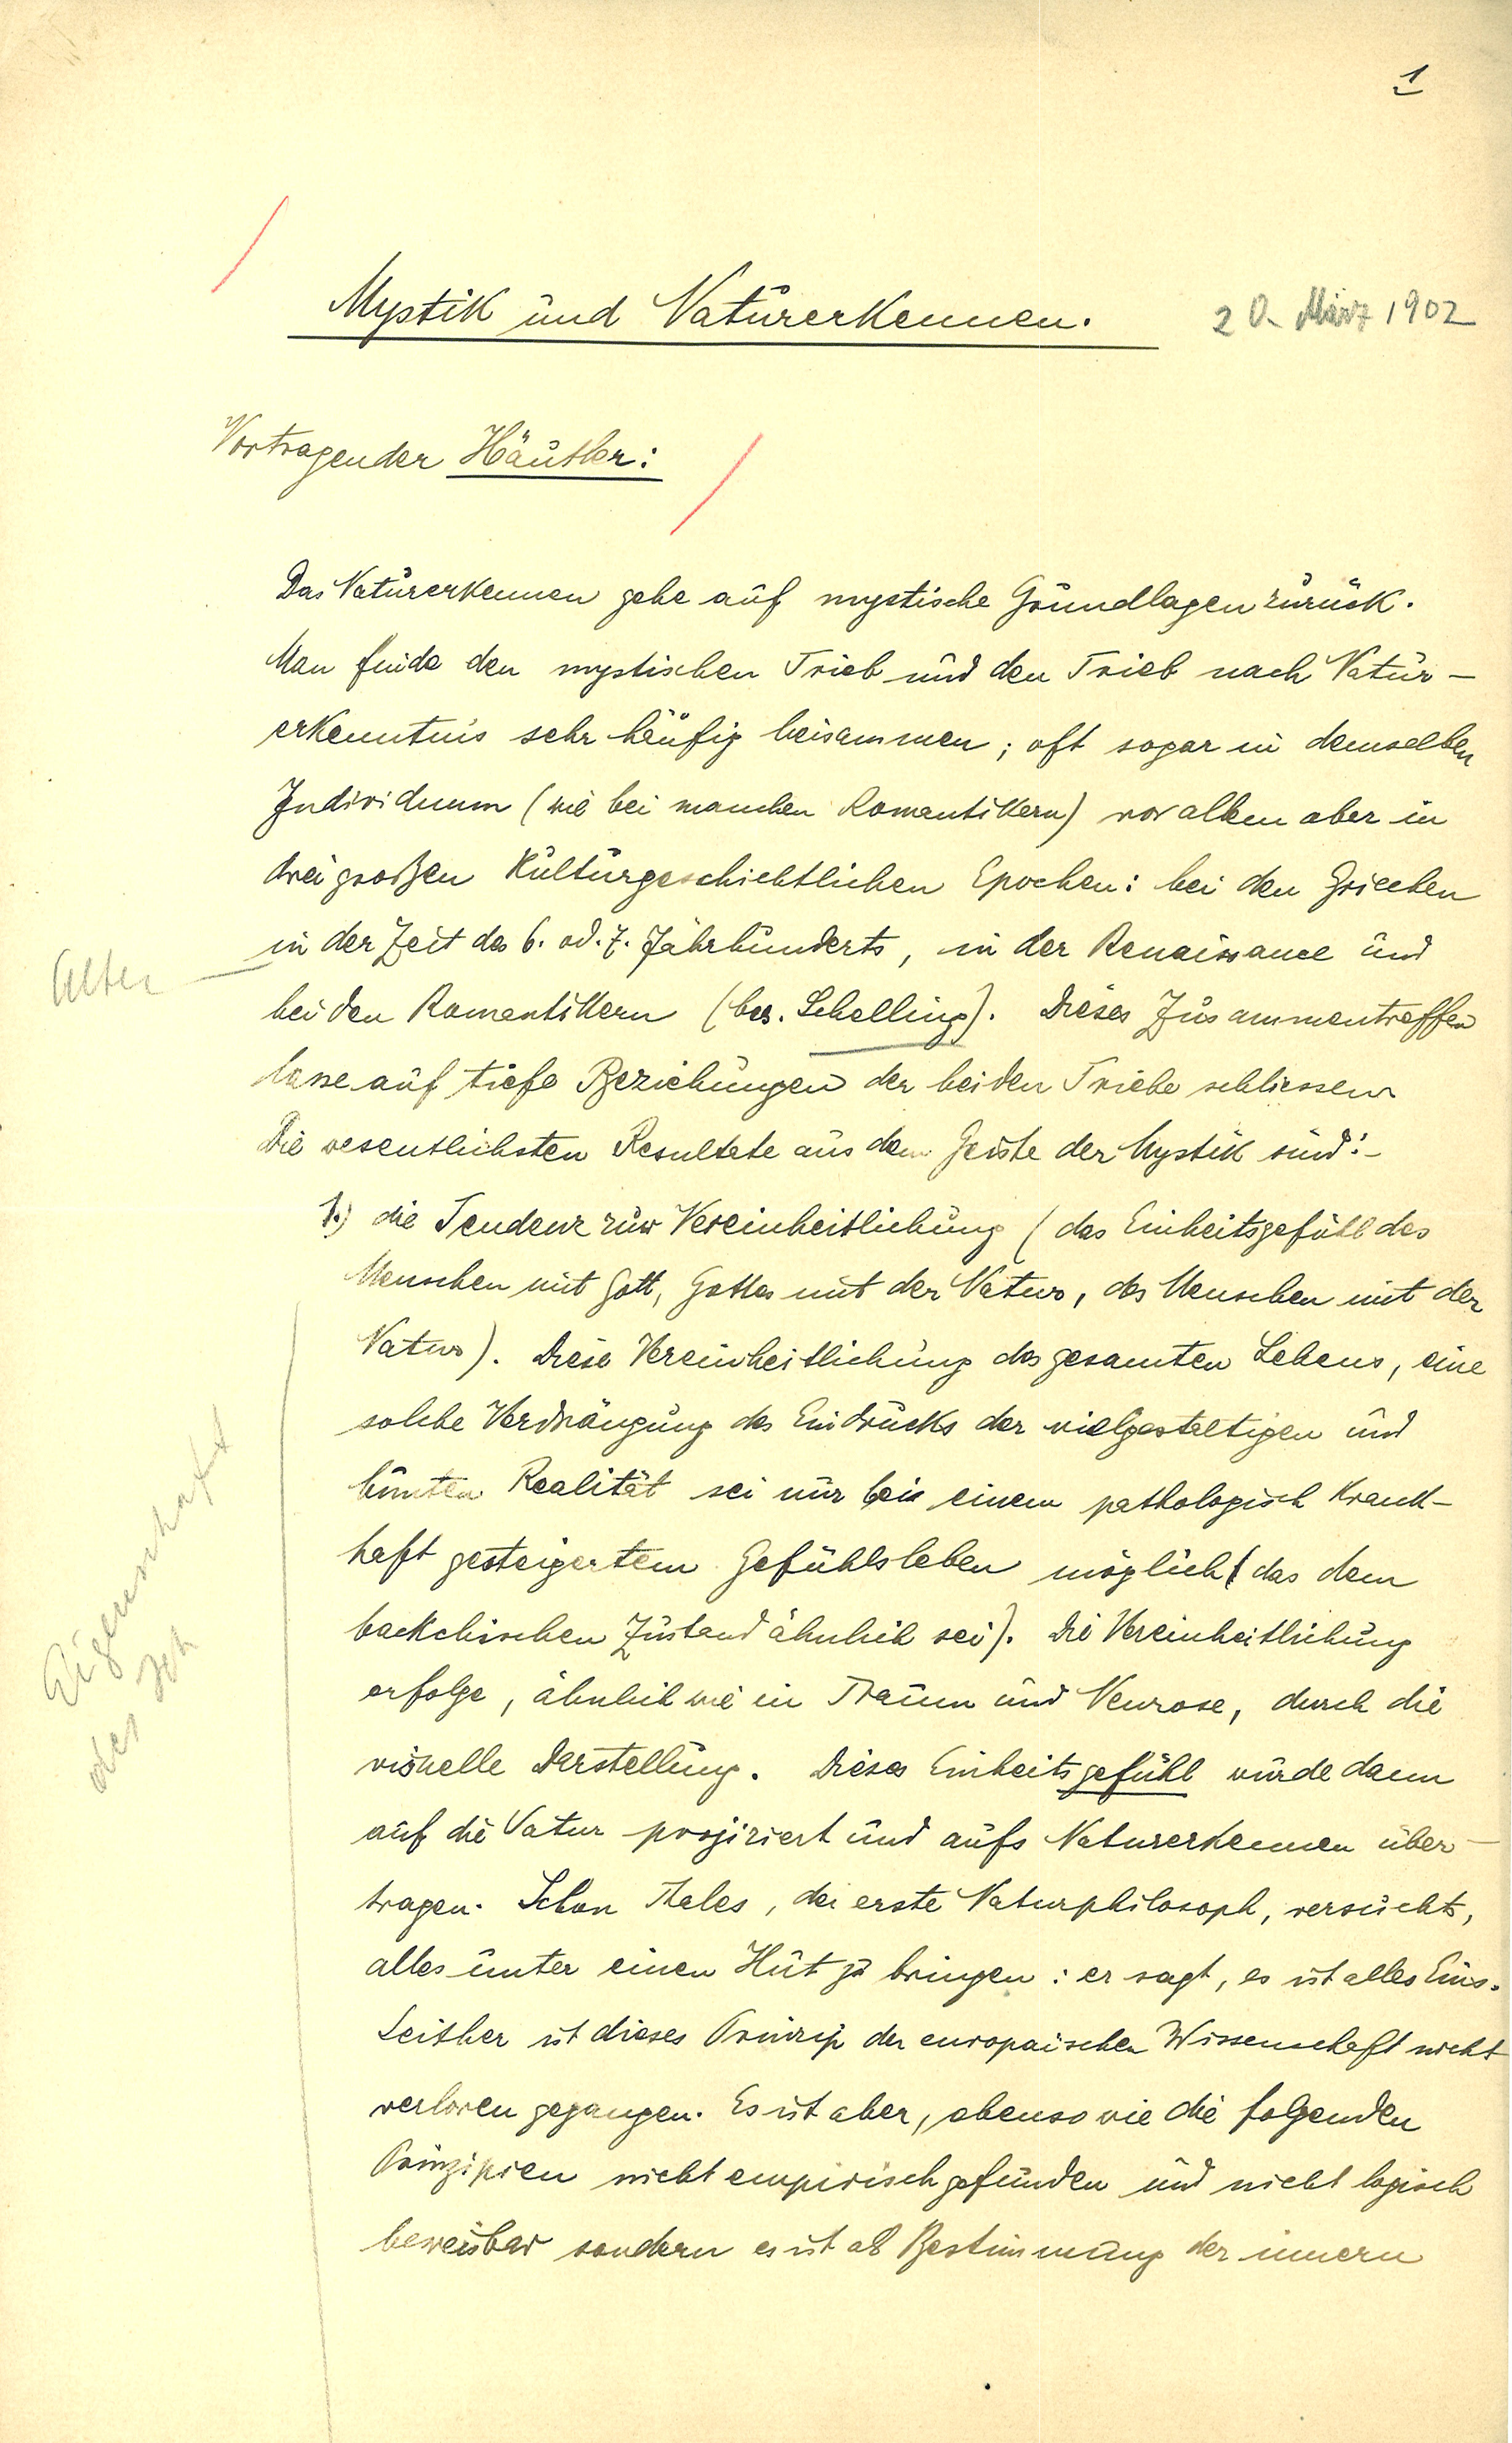 1
Mystik und Naturerkennen.
20. März 1902
Vortragender Häutler:
Das Naturerkennen gehe auf mystische Grundlagen zurück.
Man finde den mystischen Trieb und den Trieb nach Natur-
erkenntnis sehr häufig beisammen; oft sogar in demselben
Individuum (wie bei manchen Romantikern) vor allem aber in
drei großen Kulturgeschichtlichen Epochen: bei den Griechen
in der Zeit des 6. od. 7. Jahrhunderts, in der Renaissance und
bei den Romantikern (bes. Schelling). Dieses Zusammentreffen
lasse auf tiefe Beziehungen der beiden Triebe schliessen.
Die wesentlichsten Resultate aus dem Geiste der Mystik sind:-
1.) die Tendenz zur Vereinheitlichung (das Einheitsgefühl des
Menschen mit Gott, Gottes mit der Natur, des Menschen mit der
Natur). Diese Vereinheitlichung des gesamten Lebens, eine
solche Verdrängung des Eindrucks der vielgestaltigen und
bunten Realität sei nur bei einem pathologisch krank-
haft gesteigertem Gefühlsleben möglich (das dem
backchischen Zustand ähnlich sei). Die Vereinheitlichung
erfolge, ähnlich wie in Traum und Neurose, durch die
visuelle Darstellung. Dieses Einheitsgefühl würde dann
auf die Natur projiziert und aufs Naturerkennen über-
tragen. Schon Thales, der erste Naturphilosoph, versucht,
alles unter einen Hut zu bringen: er sagt, es ist alles Eins.
Seither ist dieses Prinzip der europaischen Wissenschaft nicht
verloren gegangen. Es ist aber, ebenso wie die folgenden
Prinzipien nicht empirisch gefunden und nicht logisch
beweisbar sondern es ist als Bestimmung der innern
Alter
Eigenschaft
des Ich